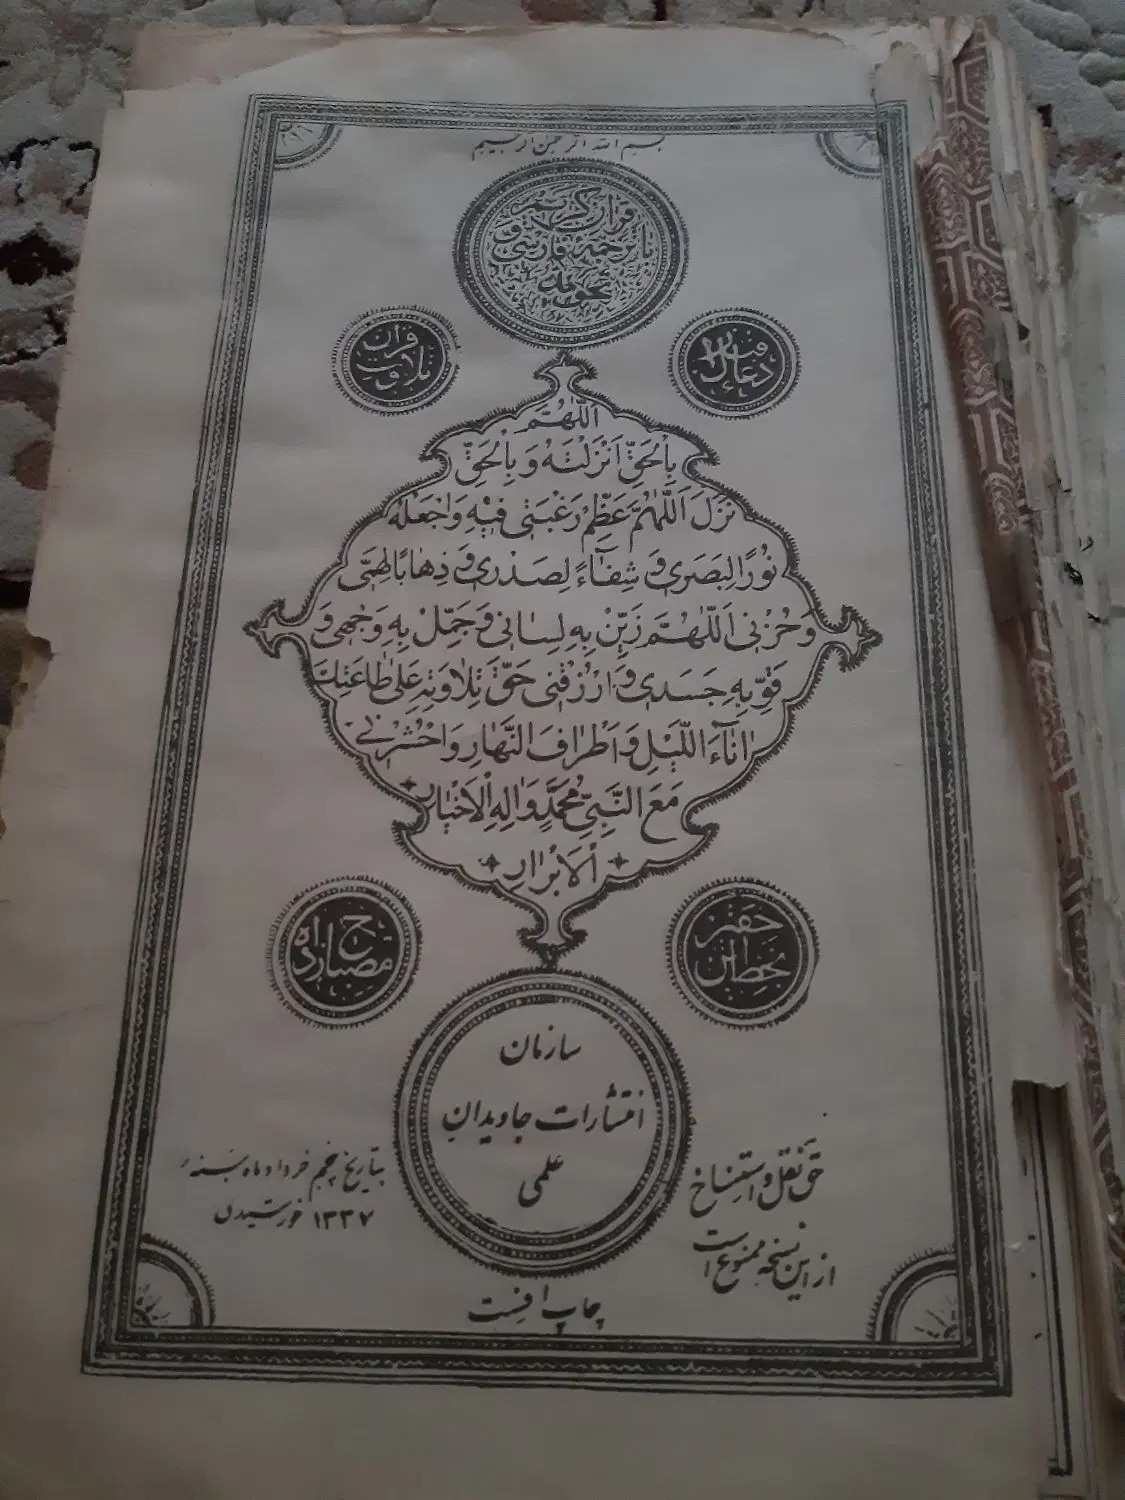 بسم الله الرحمن الرحیم
قرآن کریم
با ترجمه فارسی و
تجوید
دعای قبل از
تلاوت قرآن
اَللّٰهُمَّ
بِالْحَقِّ اَنْزَلْتَهُ وَ بِالْحَقِّ
نَزَلَ اَللّٰهُمَّ عَظِّمْ رَغْبَتی فیهِ وَاجْعَلْهُ
نُورًا لِبَصَری وَ شِفٰآءً لِصَدْری وَ ذِهٰابًا لِهَمّی
وَ حُزْنی اَللّٰهُمَّ زَیِّنْ بِهِ لِسٰانی وَ جَمِّلْ بِهِ وَجْهی وَ
قَوِّ بِهِ جَسَدی وَ ارْزُقْنی حَقَّ تِلٰاوَتِهِ عَلٰی طٰاعَتِكَ
اٰنٰآءَ اللَّیْلِ وَ اَطْرٰافَ النَّهٰارِ وَاحْشُرْنی
مَعَ النَّبِیِّ مُحَمَّدٍ وَاٰلِهِ الْاَخْیٰارِ
اَلْاَبْرٰارِ
بخط این حقیر
ح مصباح زاده
سازمان
انتشارات جاویدان
علمی
حق نقل و استنساخ
از این نسخه ممنوع است
بتاریخ پنجم خرداد ماه سنه
۱۳۳۷ خورشیدی
چاپ افست